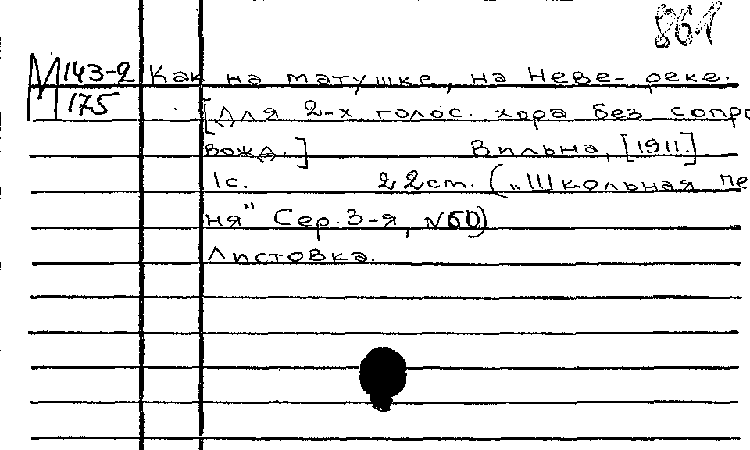 861
М 143-2 Как на матушке, на Неве- реке.
175 [Для 2-х голос. хора без сопро
вожд.] Вильна, [1911.]
1с. 22 cm. („Школьная пе
ня" Сер. 3-я, N 60)
Листовка.